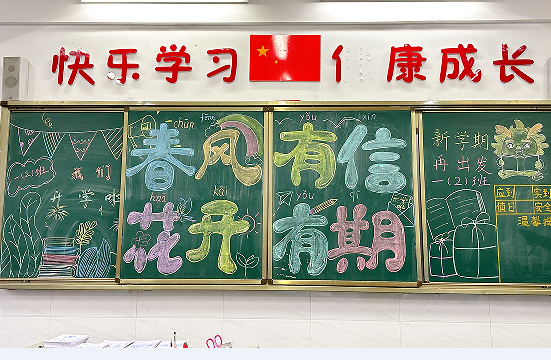 快乐学习 亻 康成长
(2)班
我们
开学啦
chūn fēng yǒu xìn
春风有信
huā kāi yǒu qī
花开有期
新学期
再出发
一(2)班
应到 实到
值日 安全
温馨提